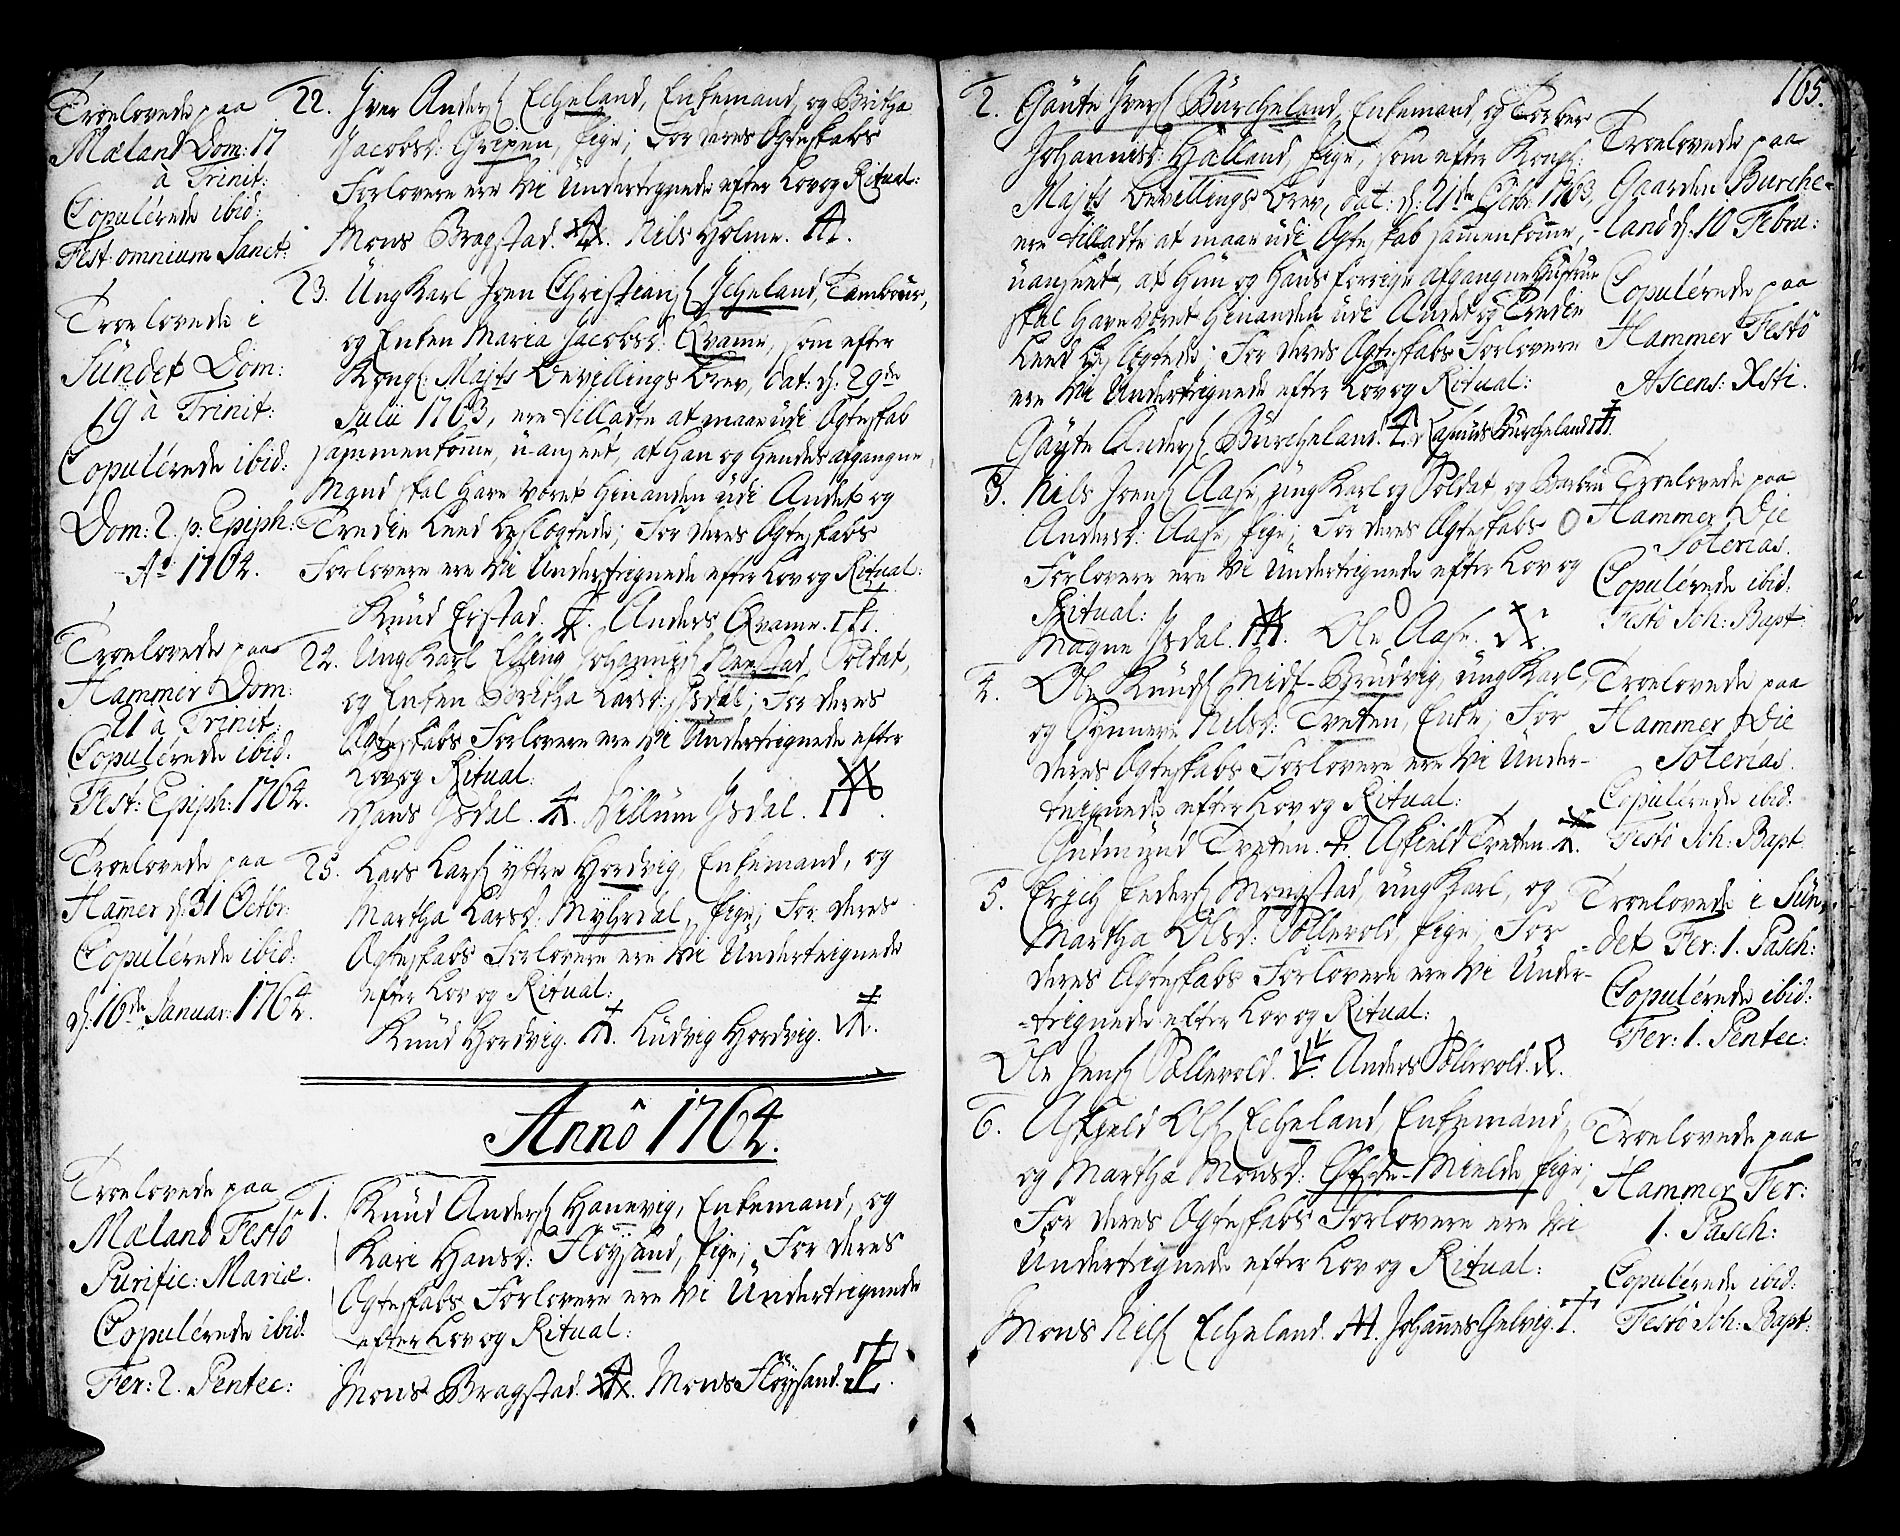 Troelovede paa
Mæland Dom: 17
à Trinit:
Copulérede ibid:
Fest: omnium Sanct:
22. Iver Anders Echeland, Enkemand, og Britha
Jacobsd: Gripen, Pige; For deres Ægteskabs
Forlovere ere Vi Undertegnede efter Lov og Ritual:
Mons Bragstad. Nils Holme.
Troelovede i
Sundet Dom:
19 à Trinit:
Copulérede ibid:
Dom: 2. p: Epiph:
Ao 1764.
23. Ung Karl Iven Christians Icheland, Tambour,
og Enken Maria Jacobsd: Qvame, som efter
Kongl: Majts Bevillings Brev, dat: d: 29de
Julii 1763, ere tilladte at maae udi Ægteskab
sammenkomme, uanseet, at Han og Hendes afgangne
Mand skal have været hinanden udi Andet og
Tredie Leed beslægtede; For deres Ægteskabs
Forlovere ere Vi Undertegnede efter Lov og Ritual:
Knud Erstad. Anders Qvame.
Troelovede paa
Hammer Dom:
21 à Trinit:
Copulérede ibid:
Fest: Epiph: 1764.
24. Ung Karl Elling Johannes Soldat,
og Enken Boritha Larsd: Isdal; For deres
Ægteskabs Forlovere ere Vi Undertegnede efter
Lov og Ritual:
Hans Isdal. Villum Isdal.
Troelovede paa
Hamer d: 31 Octbr:
Copulérede ibid:
d: 16de Januar: 1764.
25. Lars Lars yttre Hordvig, Enkemand, og
Martha Larsd: Myhrdal, Pige; For deres
Ægteskabs Forlovere ere Vi Undertegnede
efter Lov og Ritual:
Knud Hordvig. Ludvig Hordvig.
Annô 1764.
Troelovede paa
Mæland Festô
Purific: Mariæ.
Copulérede ibid.
Fer: 2. Pentec:
1. Knud Anders Hanevig, Enkemand, og
Kari Hansd: Fløysand, Pige; For deres
Ægteskabs Forlovere ere Vi Undertegnede
efter Lov og Ritual:
Mons Bragstad. Mons Fløysand.
165.
2. Gaute Ivers Burcheland, Enkemand, og Torber
Johannisd: Halland, Pige, som efter Kongl:
Majts Bevillings Brev, dat: d: 21de Octbr: 1763,
ere tilladte at maae udi Ægteskab sammenkomme,
uanseet, at Hun og Hans forrige afgangne Hustrue
skal have været hinanden udi Andet og Tredie
Leed beslægtede; For deres Ægteskabs Forlovere
ere Vi Undertegnede efter Lov og Ritual:
Gaute Anders Burcheland. Rasmus Burcheland
Troelovede paa
Gaarden Burche-
land d: 10 Febru:
Copulérede paa
Hammer Festô
Ascens: Xsti.
3. Nils Ivers Aase, ung Karl og Soldat og Barbra
Andersd: Aase, Pige; For deres Ægteskabs
Forlovere ere Vi Undertegnede efter Lov og
Ritual:
Magne Isdal. Ole Aase.
Troelovede paa
Hammer Die
Soterias.
Copulérede ibid:
Festô Joh: Bapt:
4. Ole Knuds Midt-Brudvig, ung Karl,
og Synneve Nilsd: Tveten, Enke; For
deres Ægteskabs Forlovere ere Vi Under-
tegnede efter Lov og Ritual:
Gudmund Tveten. Askield Tveten.
Troelovede paa
Hammer Die
Soterias.
Copulérede ibid.
Festô Joh: Bapt.
5. Erich Peders Mongstad, ung Karl, og
Martha Olsd: Sollevold, Pige; For
deres Ægteskabs Forlovere ere Vi Under-
-tegnede efter Lov og Ritual:
Ole Jens Sollevold. Anders Sollevold.
Troelovede i Sun-
det Fer: 1. Pasch:
Copulérede ibid:
Fer: 1. Pentec:
6. Askield Ols Echeland, Enkemand,
og Martha Monsd: Øfste-Mielde Pige;
For deres Ægteskabs Forlovere ere Vi
Undertegnede efter Lov og Ritual:
Mons Nils Echeland. Johannes Helvig.
Troelovede paa
Hammer Fer:
1. Pasch:
Copulérede ibid:
Festô Joh: Bapt: